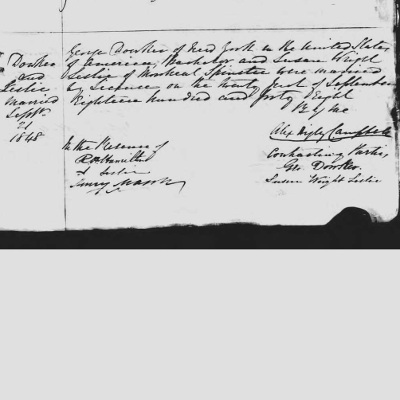 Dowker
and
Leslie
Married
Septr.
21
1848
George Dowker of New York in the United States
of America, Bachelor and Susan Wright
Leslie of Montreal Spinster were married
by License on the twenty first of September
Eighteen hundred and forty Eight
By me
Alex Digby Campbell
In the Presence of
Hamilton
Leslie
Contracting Parties
Geo. Dowker
Susan Wright Leslie